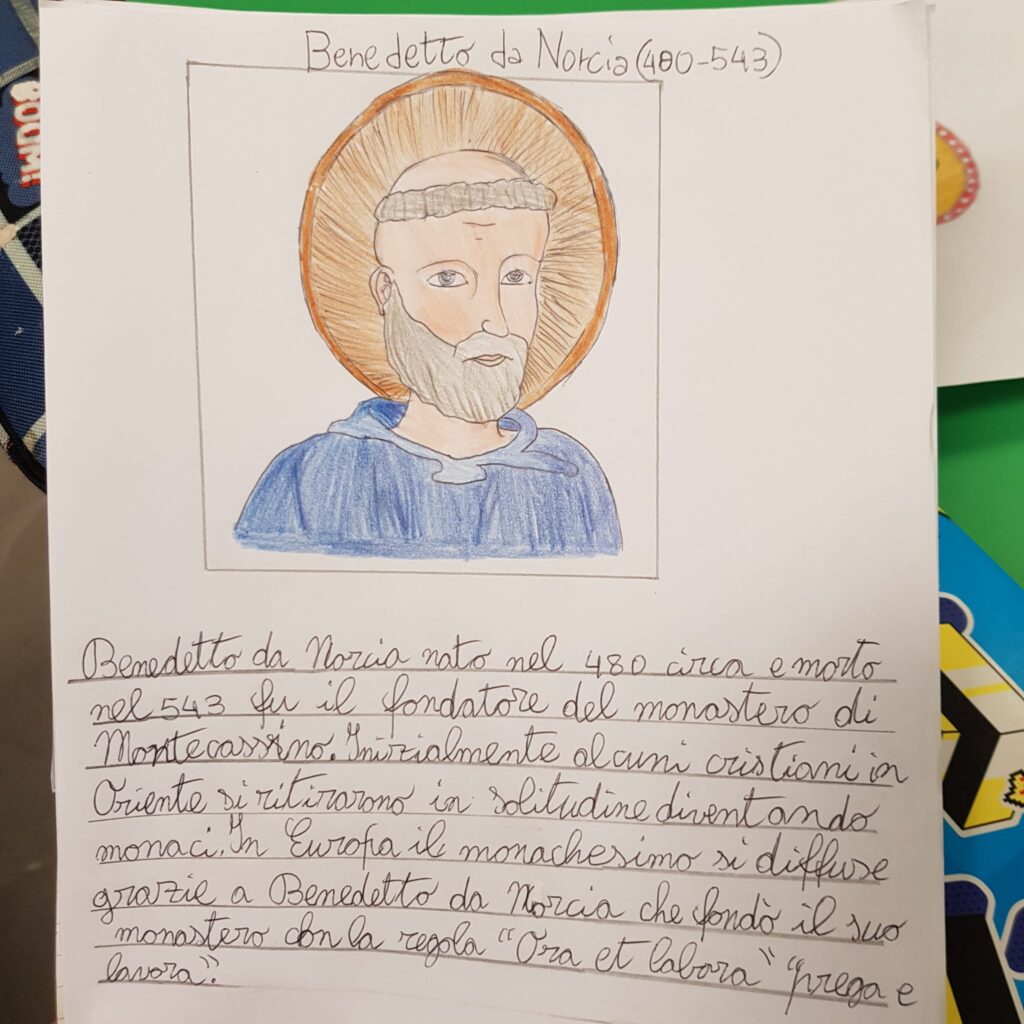 Benedetto da Norcia (480-543)
BOOM!
Benedetto da Norcia nato nel 480 circa e morto
nel 543 fu il fondatore del monastero di
Montecassino. Inizialmente alcuni cristiani in
Oriente si ritirarono in solitudine diventando
monaci. In Europa il monachesimo si diffuse
grazie a Benedetto da Norcia che fondò il suo
monastero con la regola "Ora et labora" "prega e
lavora".